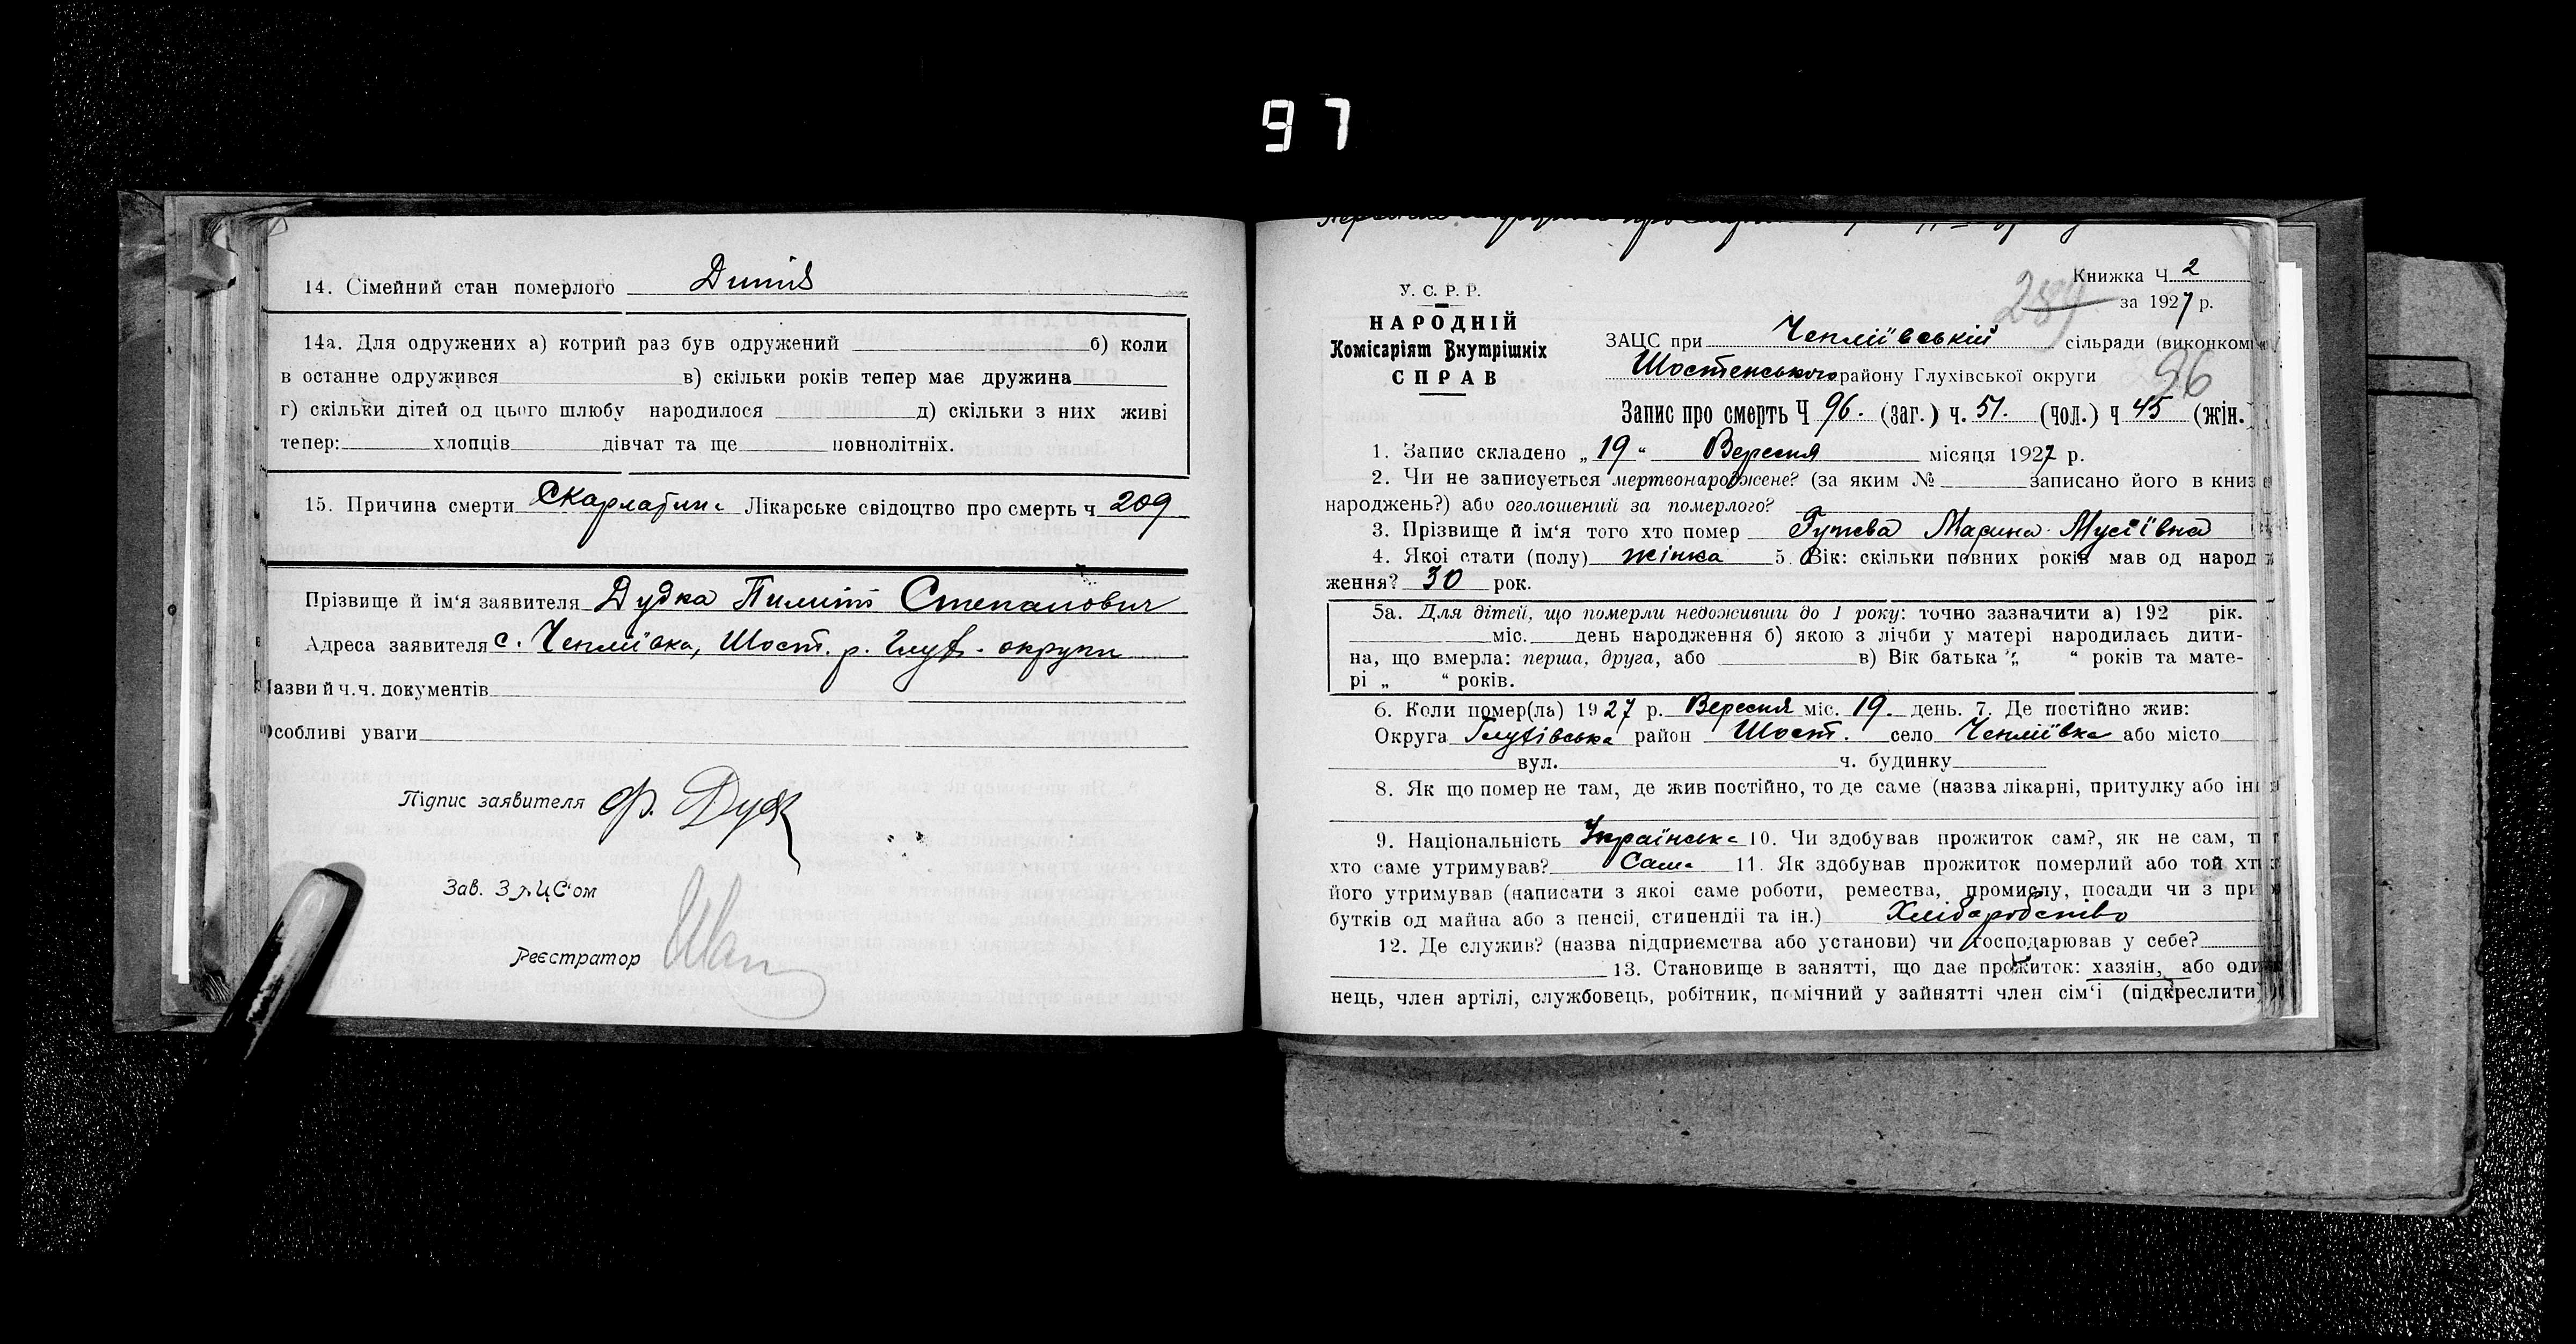 97
14. Сімейний стан померлого
14а. Для одружених а) котрий раз був одружений б) коли
в останнє одружився в) скільки років тепер має дружина
г) скільки дітей од цього шлюбу народилося д) скільки з них живі
тепер: хлопців дівчат та ще повнолітніх.
15. Причина смерти Скарлатина Лікарське свідоцтво про смерть ч 209
Прізвище й ім'я заявителя Дудка Пилип Степанович
Адреса заявителя с. Чепліївка, Шост. р. Глух. округи
Назви й ч.ч. документів
Особливі уваги
Підпис заявителя
Зав. ЗАЦС'ом
Реєстратор
Книжка Ч 2
У. С. Р. Р.
за 1927 р.
НАРОДНІЙ
Комісаріят Внутрішніх
СПРАВ
ЗАЦС при Чепліївській сільради (виконком
Шостенського району Глухівської округи
96
Запис про смерть Ч 96. (заг.) ч. 51. (чол.) ч 45 (жін.)
1. Запис складено „19" Вересня місяця 1927 р.
2. Чи не записується мертвонароджене? (за яким № записано його в книз
народжень?) або оголошений за померлого?
3. Прізвище й ім'я того хто помер Марина Мусіївна
4. Якої стати (полу) жінка 5. Вік: скільки повних років мав од народ
ження? 30 рок.
5а. Для дітей, що померли недоживши до 1 року: точно зазначити а) 192 рік.
міс. день народження б) якою з лічби у матері народилась дити-
на, що вмерла: перша, друга, або в) Вік батька „ “ років та мате-
рі „ “ років.
6. Коли помер(ла) 1927 р. Вересня міс. 19. день. 7. Де постійно жив:
Округа Глухівська район Шост. село Чепліївка або місто
вул. ч. будинку
8. Як що помер не там, де жив постійно, то де саме (назва лікарні, притулку або ін
9. Національність Українська 10. Чи здобував прожиток сам?, як не сам, т
хто саме утримував? Сама 11. Як здобував прожиток померлий або той хт
його утримував (написати з якої саме роботи, ремества, промислу, посади чи з при
бутків од майна або з пенсії, стипендії та ін.) Хліборобство
12. Де служив? (назва підприємства або установи) чи господарював у себе?
13. Становище в занятті, що дає прожиток: хазяін, або оди
нець, член артілі, службовець, робітник, помічний у зайнятті член сім'ї (підкреслити)